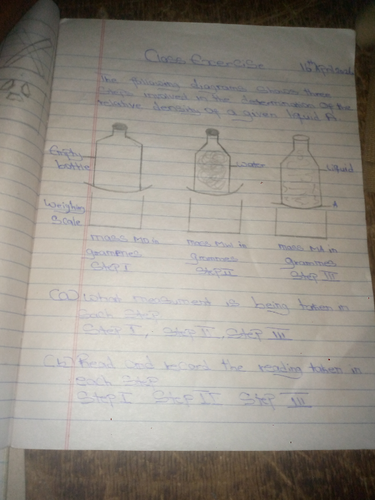 Class Exercise
The following diagrams shows three
steps involved in the determination of the
relative density of a given liquid A.
Empty bottle
Water
Liquid A
Weighing Scale
mass m0 in grammes
Step I
mass m1 in grammes
Step II
mass mA in grammes
Step III
(a) What measurement is being taken in
each step
Step I, Step II, Step III
(b) Read and record the reading taken in
each step
Step I Step II Step III